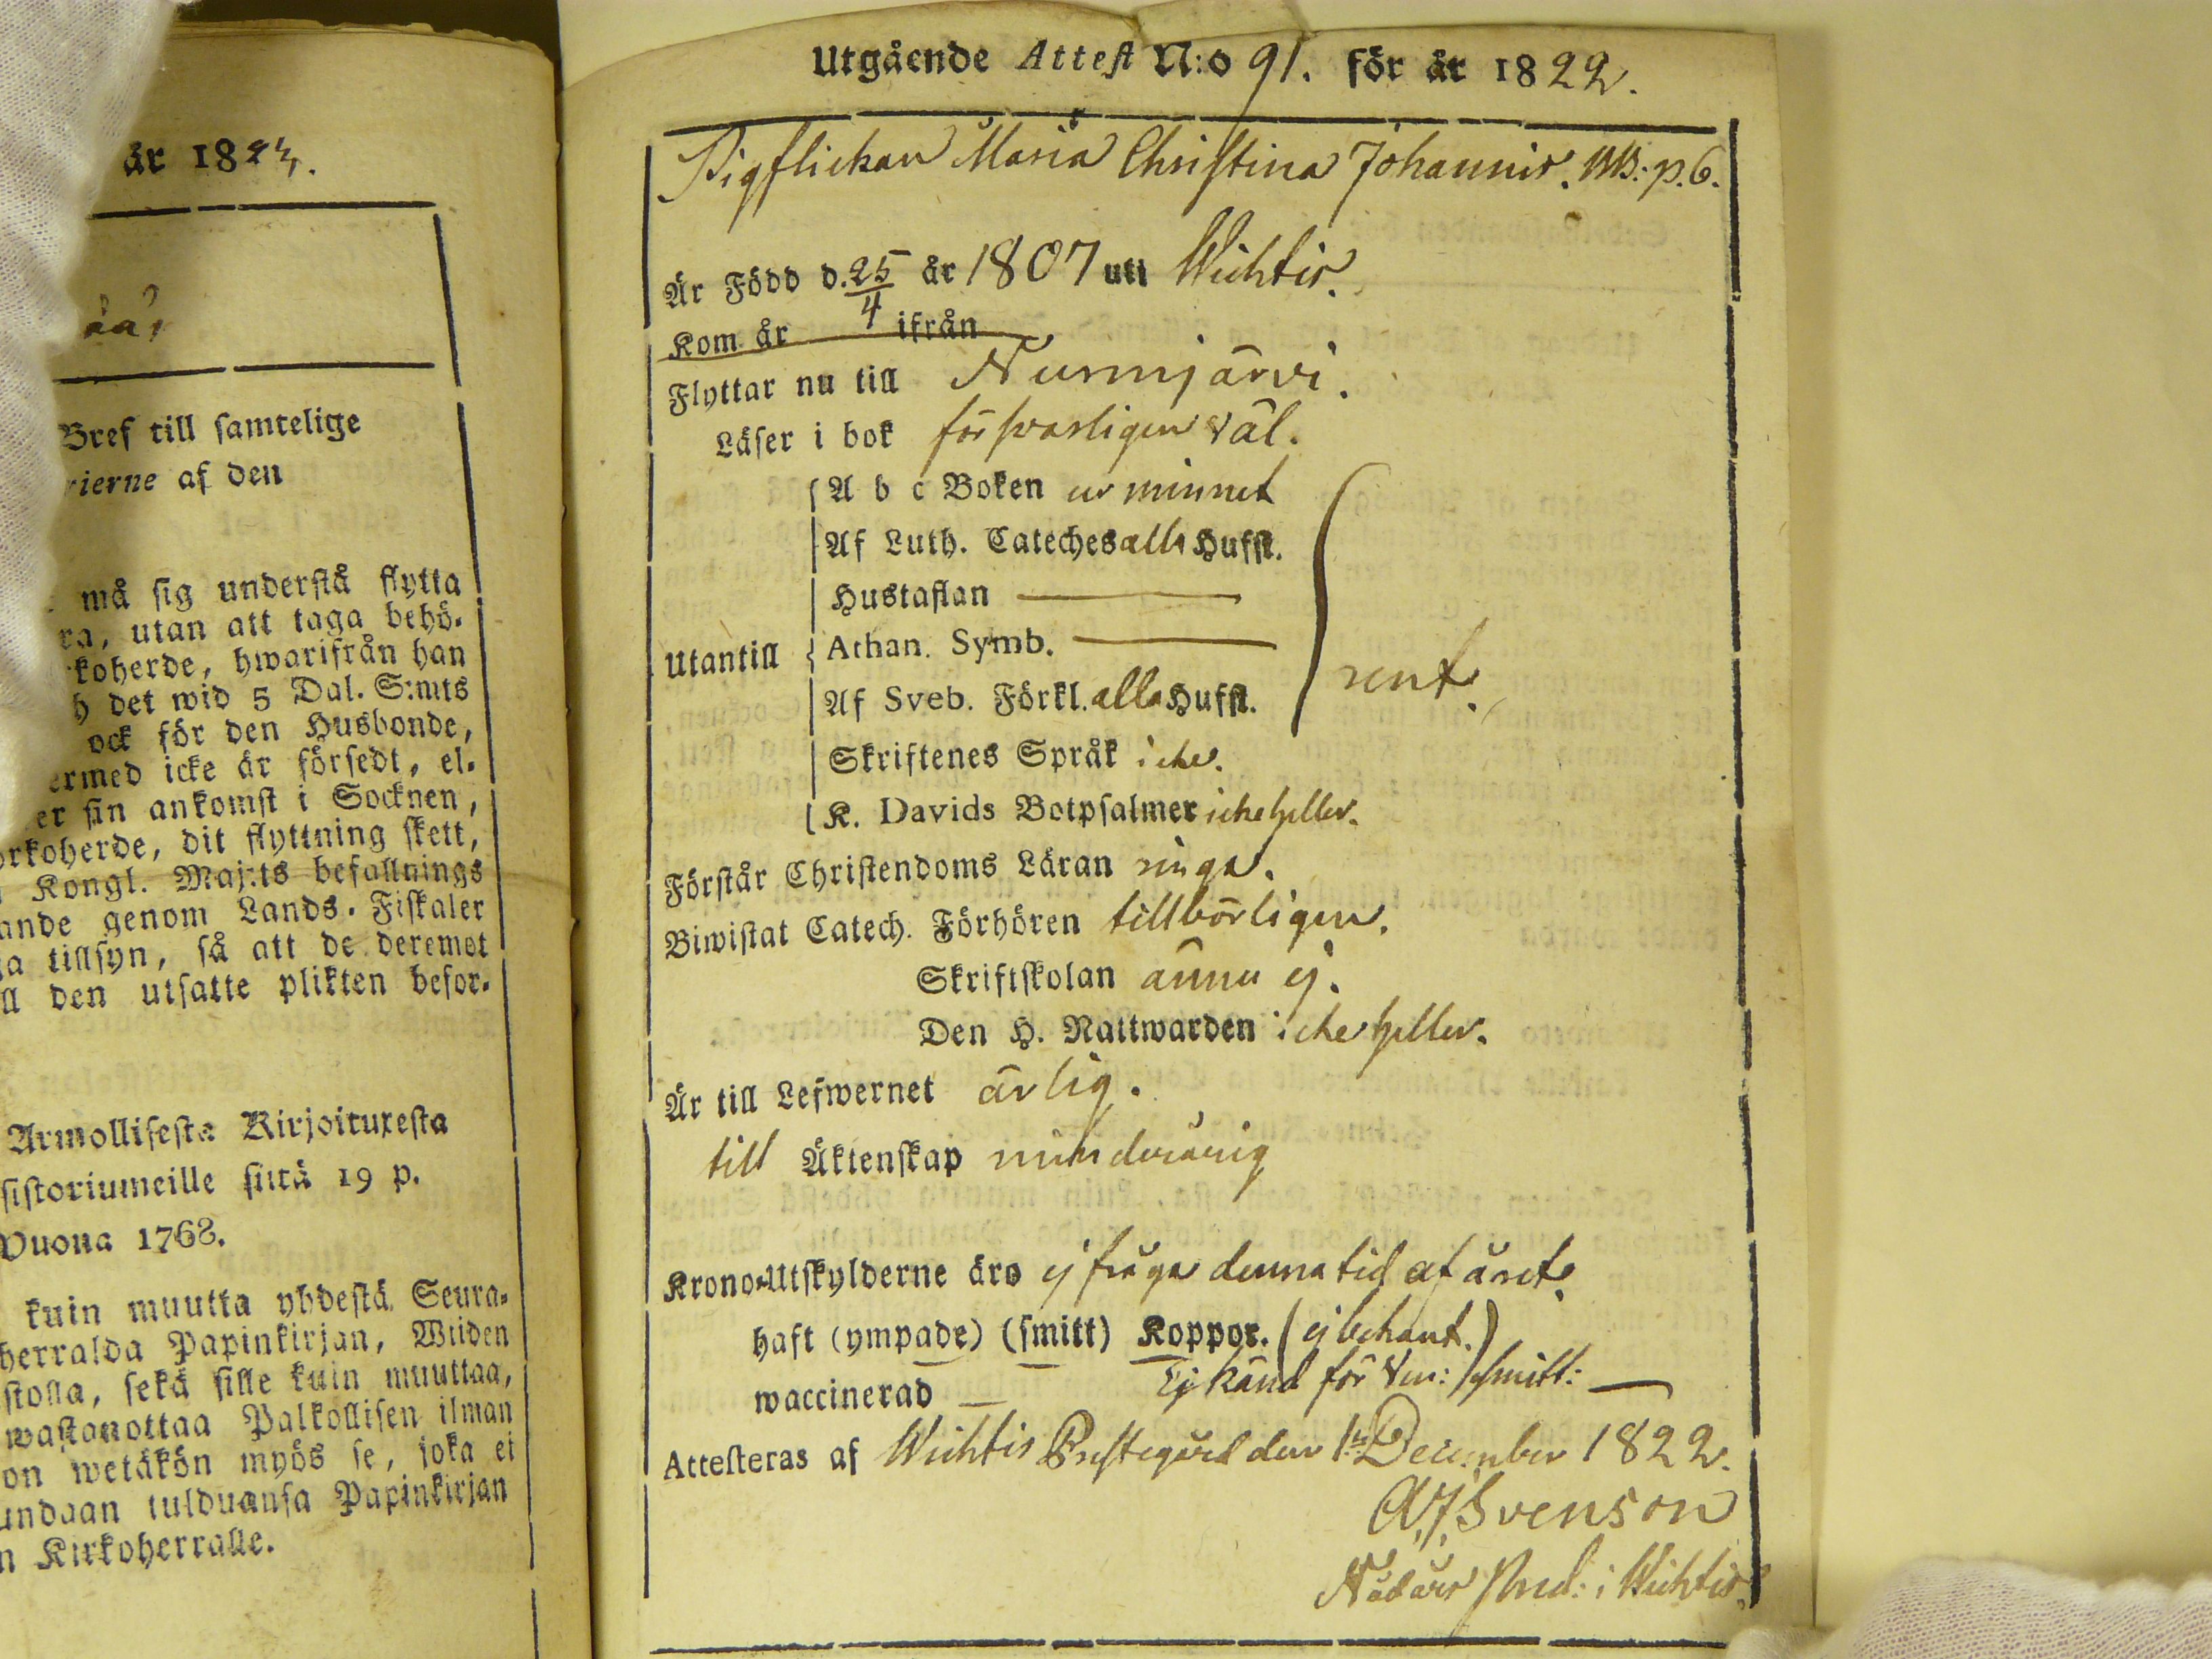 år 1823.
Bref till samtelige
rierne af den
må sig understå flytta
ra, utan att taga behö-
koherde, hwarifrån han
h det wid 5 Dal. S:mts
ock för den Husbonde,
ermed icke är försedt, el-
er sin ankomst i Socknen,
orkoherde, dit flyttning skett,
Kongl. Maj:ts befallnings
ande genom Lands-Fiskaler
ga tillsyn, så att de deremot
ll den utsatte plikten befor-
Armollisesta Kirjoituxesta
sistoriumeille siitä 19 p.
Vuona 1768.
kuin muutta yhdestä Seura-
herralda Papinkirjan, Wiiden
stolla, sekä sille kuin muuttaa,
wastanottaa Palkollisen ilman
on wetäkön myös se, joka ei
undaan tulduansa Papinkirjan
n Kirkoherralle.
Utgående Attest N:o 91. för år 1822.
Pigflickan Maria Christina Johannis. MB: p. 6.
Är Född d. 25/4 år 1807 uti Wichtis.
Kom år ifrån
Flyttar nu till Nurmijärvi.
Läser i bok försvarligen väl.
A b c Boken ur minnet
Af Luth. Cateches alla Hufst.
Hustaflan —
Utantill Athan. Symb. — rent.
Af Sveb. Förkl. alla Hufst.
Skriftenes Språk icke.
K. Davids Botpsalmer icke heller.
Förstår Christendoms Läran ringa.
Biwistat Catech. Förhören tillbörligen.
Skriftskolan ännu ej.
Den H. Nattwarden icke heller.
Är till Lefwernet ärlig.
till Äktenskap minderårig
Krono-Utskylderne äro ej fråga denna tid af året.
haft (ympade) (smitt) Koppor. (ej bekant.)
waccinerad — Ej känd för Ven: smitt: —
Attesteras af Wichtis Prestegård den 1 December 1822.
A. J. Svenson
Nådårs Pred: i Wichtis.